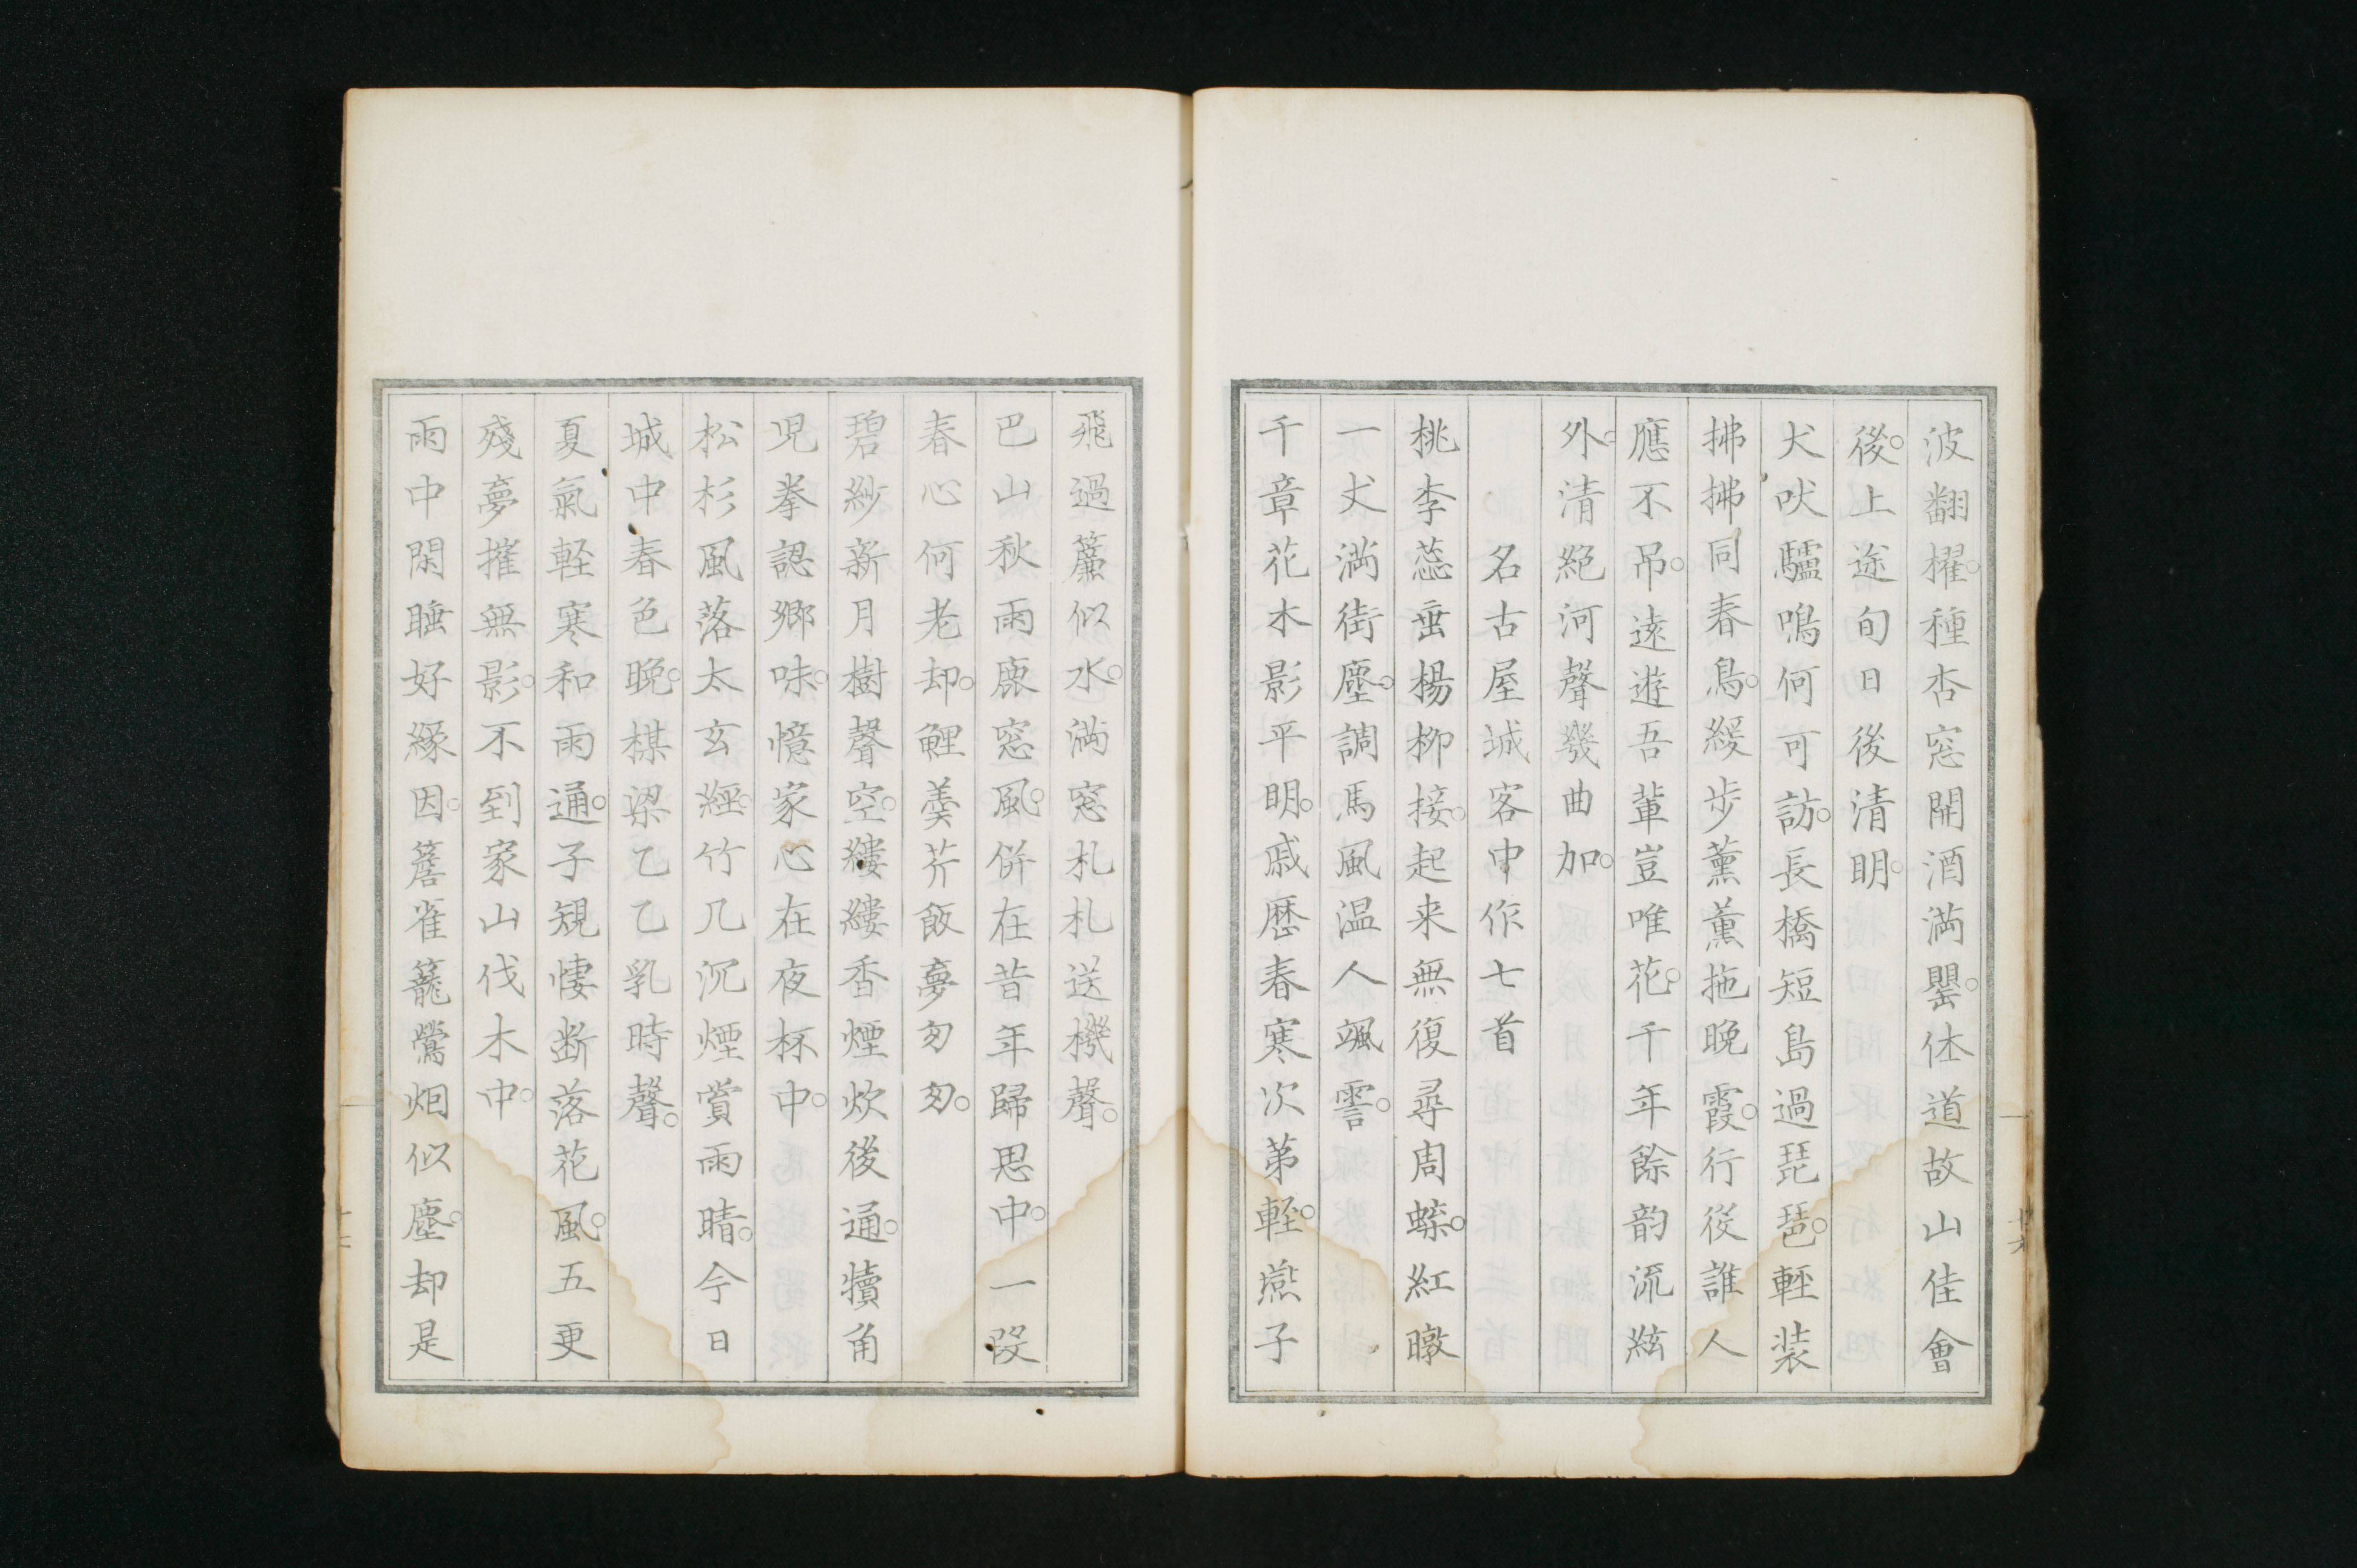 波翻櫂。種杏窓開酒満罌。休道故山佳會
後。上途旬日後清明。
犬吠驢鳴何可訪。長橋短島過琵琶。軽装
拂拂同春鳥。緩歩薫薫拖晩霞。行從誰人
應不吊。遠遊吾輩豈唯花。千年餘韵流絃
外。清絕河聲發曲加。
名古屋城客中作七首
桃李蕊垂楊柳接。起来無復尋周蝶。紅暾
一丈満街塵。調馬風温人颯霅。
千章花木影平明。戚歴春寒次第軽。燕子
飛過簾似水。満窓札札送機聲。
巴山秋雨鹿窓風。併在昔年歸思中。一段
春心何老却。鯉羹芥飯夢匆匆。
碧紗新月樹聲空。縷縷香煙炊後通。犢角
児拳認郷味。憶家心在夜杯中。
松杉風落太玄經。竹几沉煙賞雨晴。今日
城中春色晩。楳梁乙乙乳時聲。
夏氣軽寒和雨通。子規悽断落花風。五更
殘夢摧無影。不到家山伐木中。
雨中閑睡好縁因。簷雀籠鶯炯似塵。却是
十六